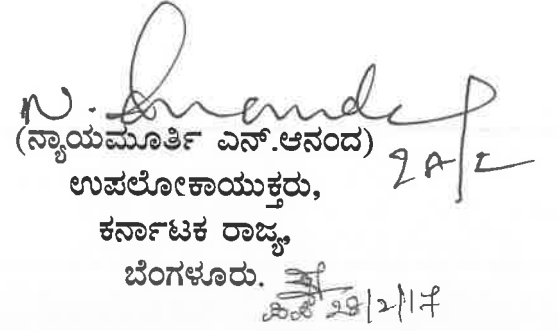 N. Ananda
(ನ್ಯಾಯಮೂರ್ತಿ ಎನ್.ಆನಂದ)
ಉಪಲೋಕಾಯುಕ್ತರು,
ಕರ್ನಾಟಕ ರಾಜ್ಯ,
ಬೆಂಗಳೂರು.
28/2/17